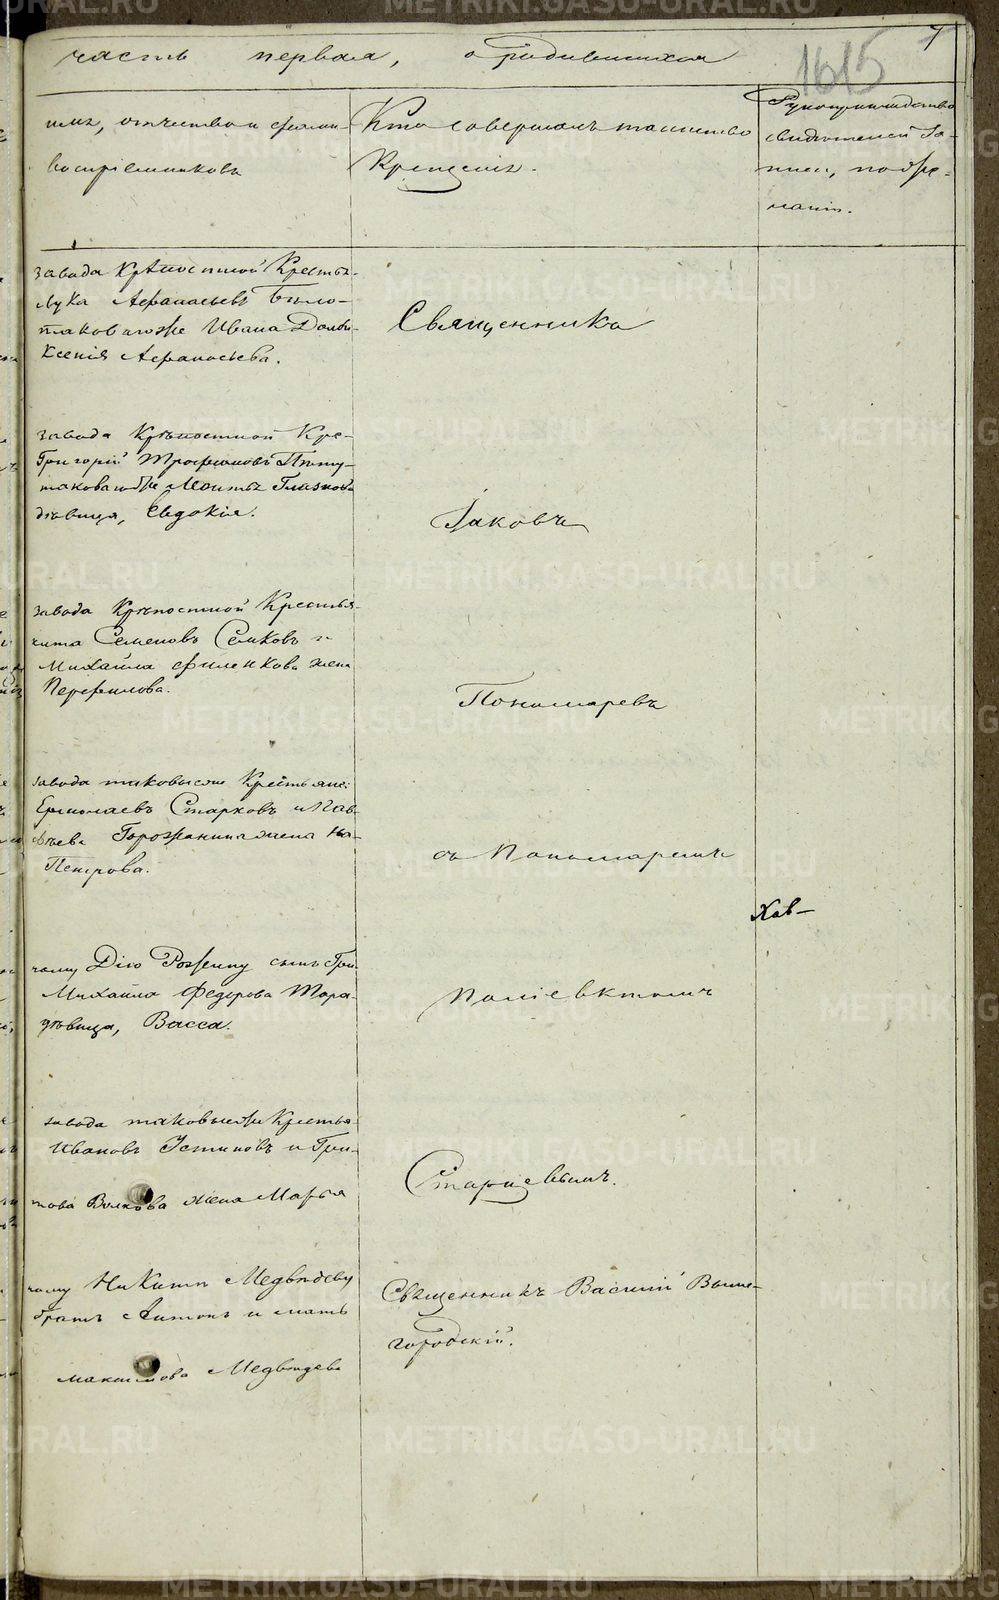 7
1615
часть первая, о родившихся
имя, отчество и фамил
воспріемниковъ
Кто совершалъ таинство
Крещенія.
Рукоприкладство
свидѣтелей за-
писи, по же-
ланію.
завода Крѣпостной Крестья-
Лука Афанасьевъ Било-
таковагоже Ивана
Ксенія Афанасьева.
Священникъ
завода Крѣпостной Кре-
Григорій Трофимовъ
таковагоже
дѣвица, Евдокія.
Іаковъ
завода Крѣпостной Крестья-
кита Семеновъ Семковъ и
Михайла Филенкова жена
Перфилова.
Пономаревъ
завода таковыеже Крестьяне:
Ермолаевъ Старковъ и Пав-
Горожанина жена На-
Петрова.
съ Пономаремъ
Хав-
чему сынъ Гри-
Михайла Федорова Тара-
дѣвица, Васса.
Поліевктомъ
завода таковыеже Крестья-
Ивановъ Устиновъ и Гри-
това Волкова жена Марья
Старцевымъ.
чему Никите Медвѣдеву
братъ Антонъ и мать
Максимова Медвѣдева
Священникъ Василій Выше-
городскій.
METRIKI.GASO-URAL.RU